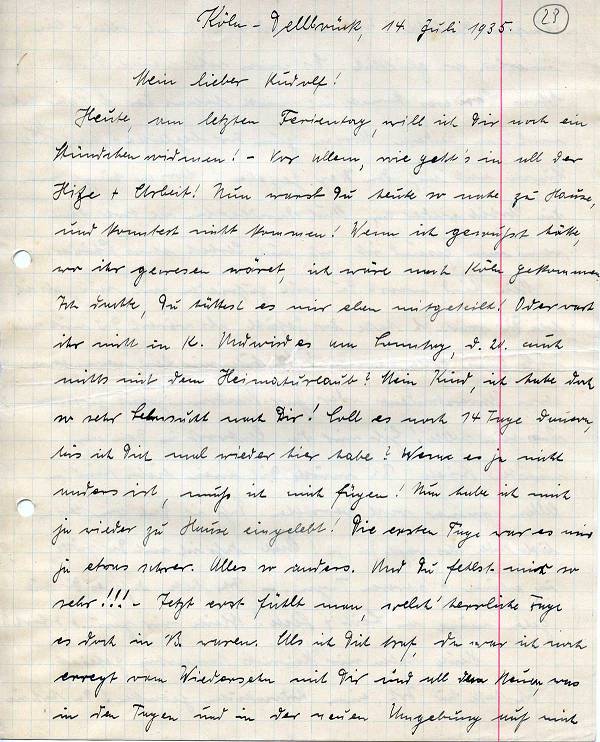 Köln-Dellbrück, 14. Juli 1935.
23
Mein lieber Rudolf!
Heute, am letzten Ferientag, will ich Dir noch ein
Stündchen widmen! - Vor allem, wie geht's in all der
Hitze + Arbeit! Nun warst Du heute so nahe zu Hause,
und konntest nicht kommen! Wenn ich gewußt hätte,
wo ihr gewesen wäret, ich wäre nach Köln gekommen.
Ich dachte, Du hättest es mir eben mitgeteilt! Oder wart
ihr nicht in K. Und wird es am Sonntag, d. 21. auch
nichts mit dem Heimaturlaub? Mein Kind, ich habe doch
so sehr Sehnsucht nach Dir! Soll es noch 14 Tage dauern,
bis ich Dich mal wieder hier habe? Wenn es ja nicht
anders ist, muß ich mich fügen! Nun habe ich mich
ja wieder zu Hause eingelebt! Die ersten Tage war es mir
ja etwas schwer. Alles so anders. Und Du fehlst mir so
sehr!!! - Jetzt erst fühlt man, welch' herrliche Tage
es doch in B. waren. Als ich Dich traf, da war ich noch
erregt vom Wiedersehn mit Dir und all dem Neuen, was
in den Tagen und in der neuen Umgebung auf mich